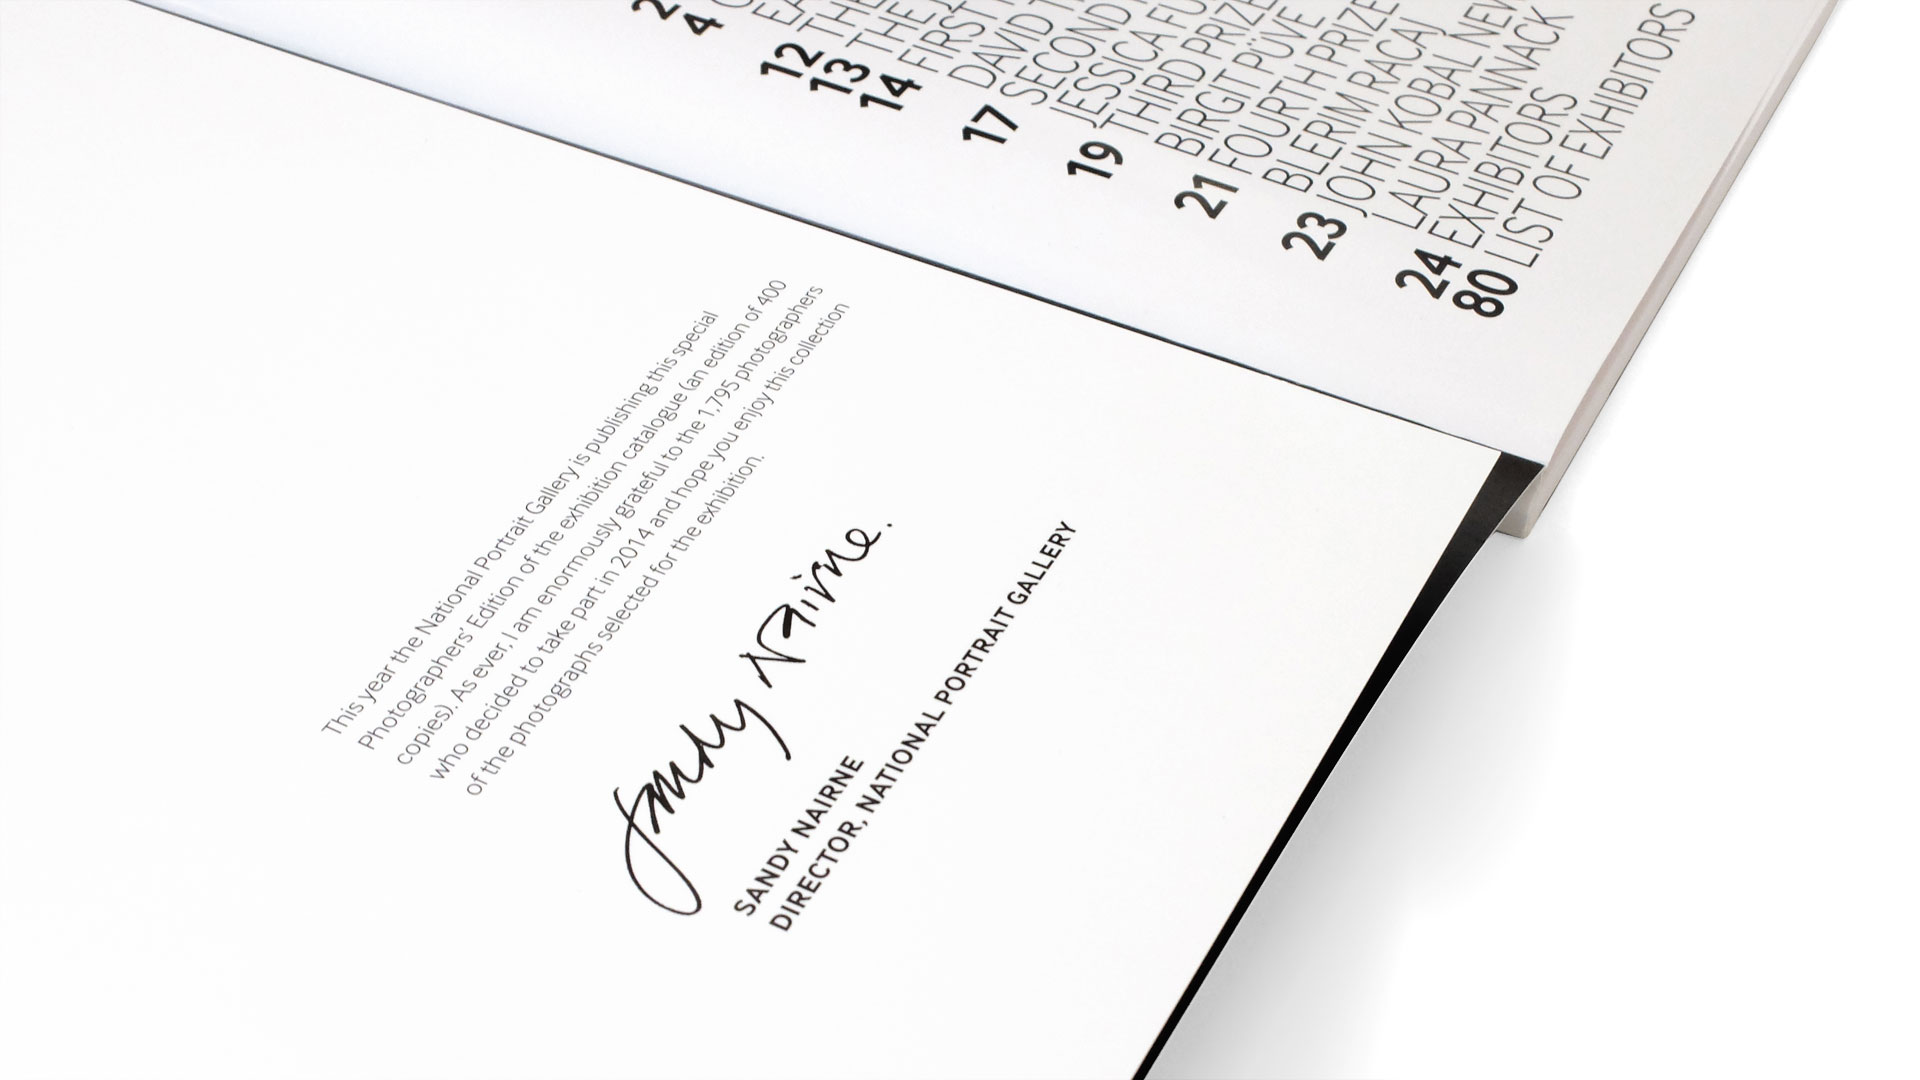 This year the National Portrait Gallery is publishing this special
Photographers' Edition of the exhibition catalogue (an edition of 400
copies). As ever, I am enormously grateful to the 1,795 photographers
who decided to take part in 2014 and hope you enjoy this collection
of the photographs selected for the exhibition.
Sandy Nairne.
SANDY NAIRNE
DIRECTOR, NATIONAL PORTRAIT GALLERY
2
4
12 THE
13 THE
14 FIRST
DAVID
17 SECOND
JESSICA
19 THIRD PRIZE
BIRGIT PÜVE
21 FOURTH PRIZE
BLERIM RACAJ
23 JOHN KOBAL NEW
LAURA PANNACK
24 EXHIBITORS
80 LIST OF EXHIBITORS